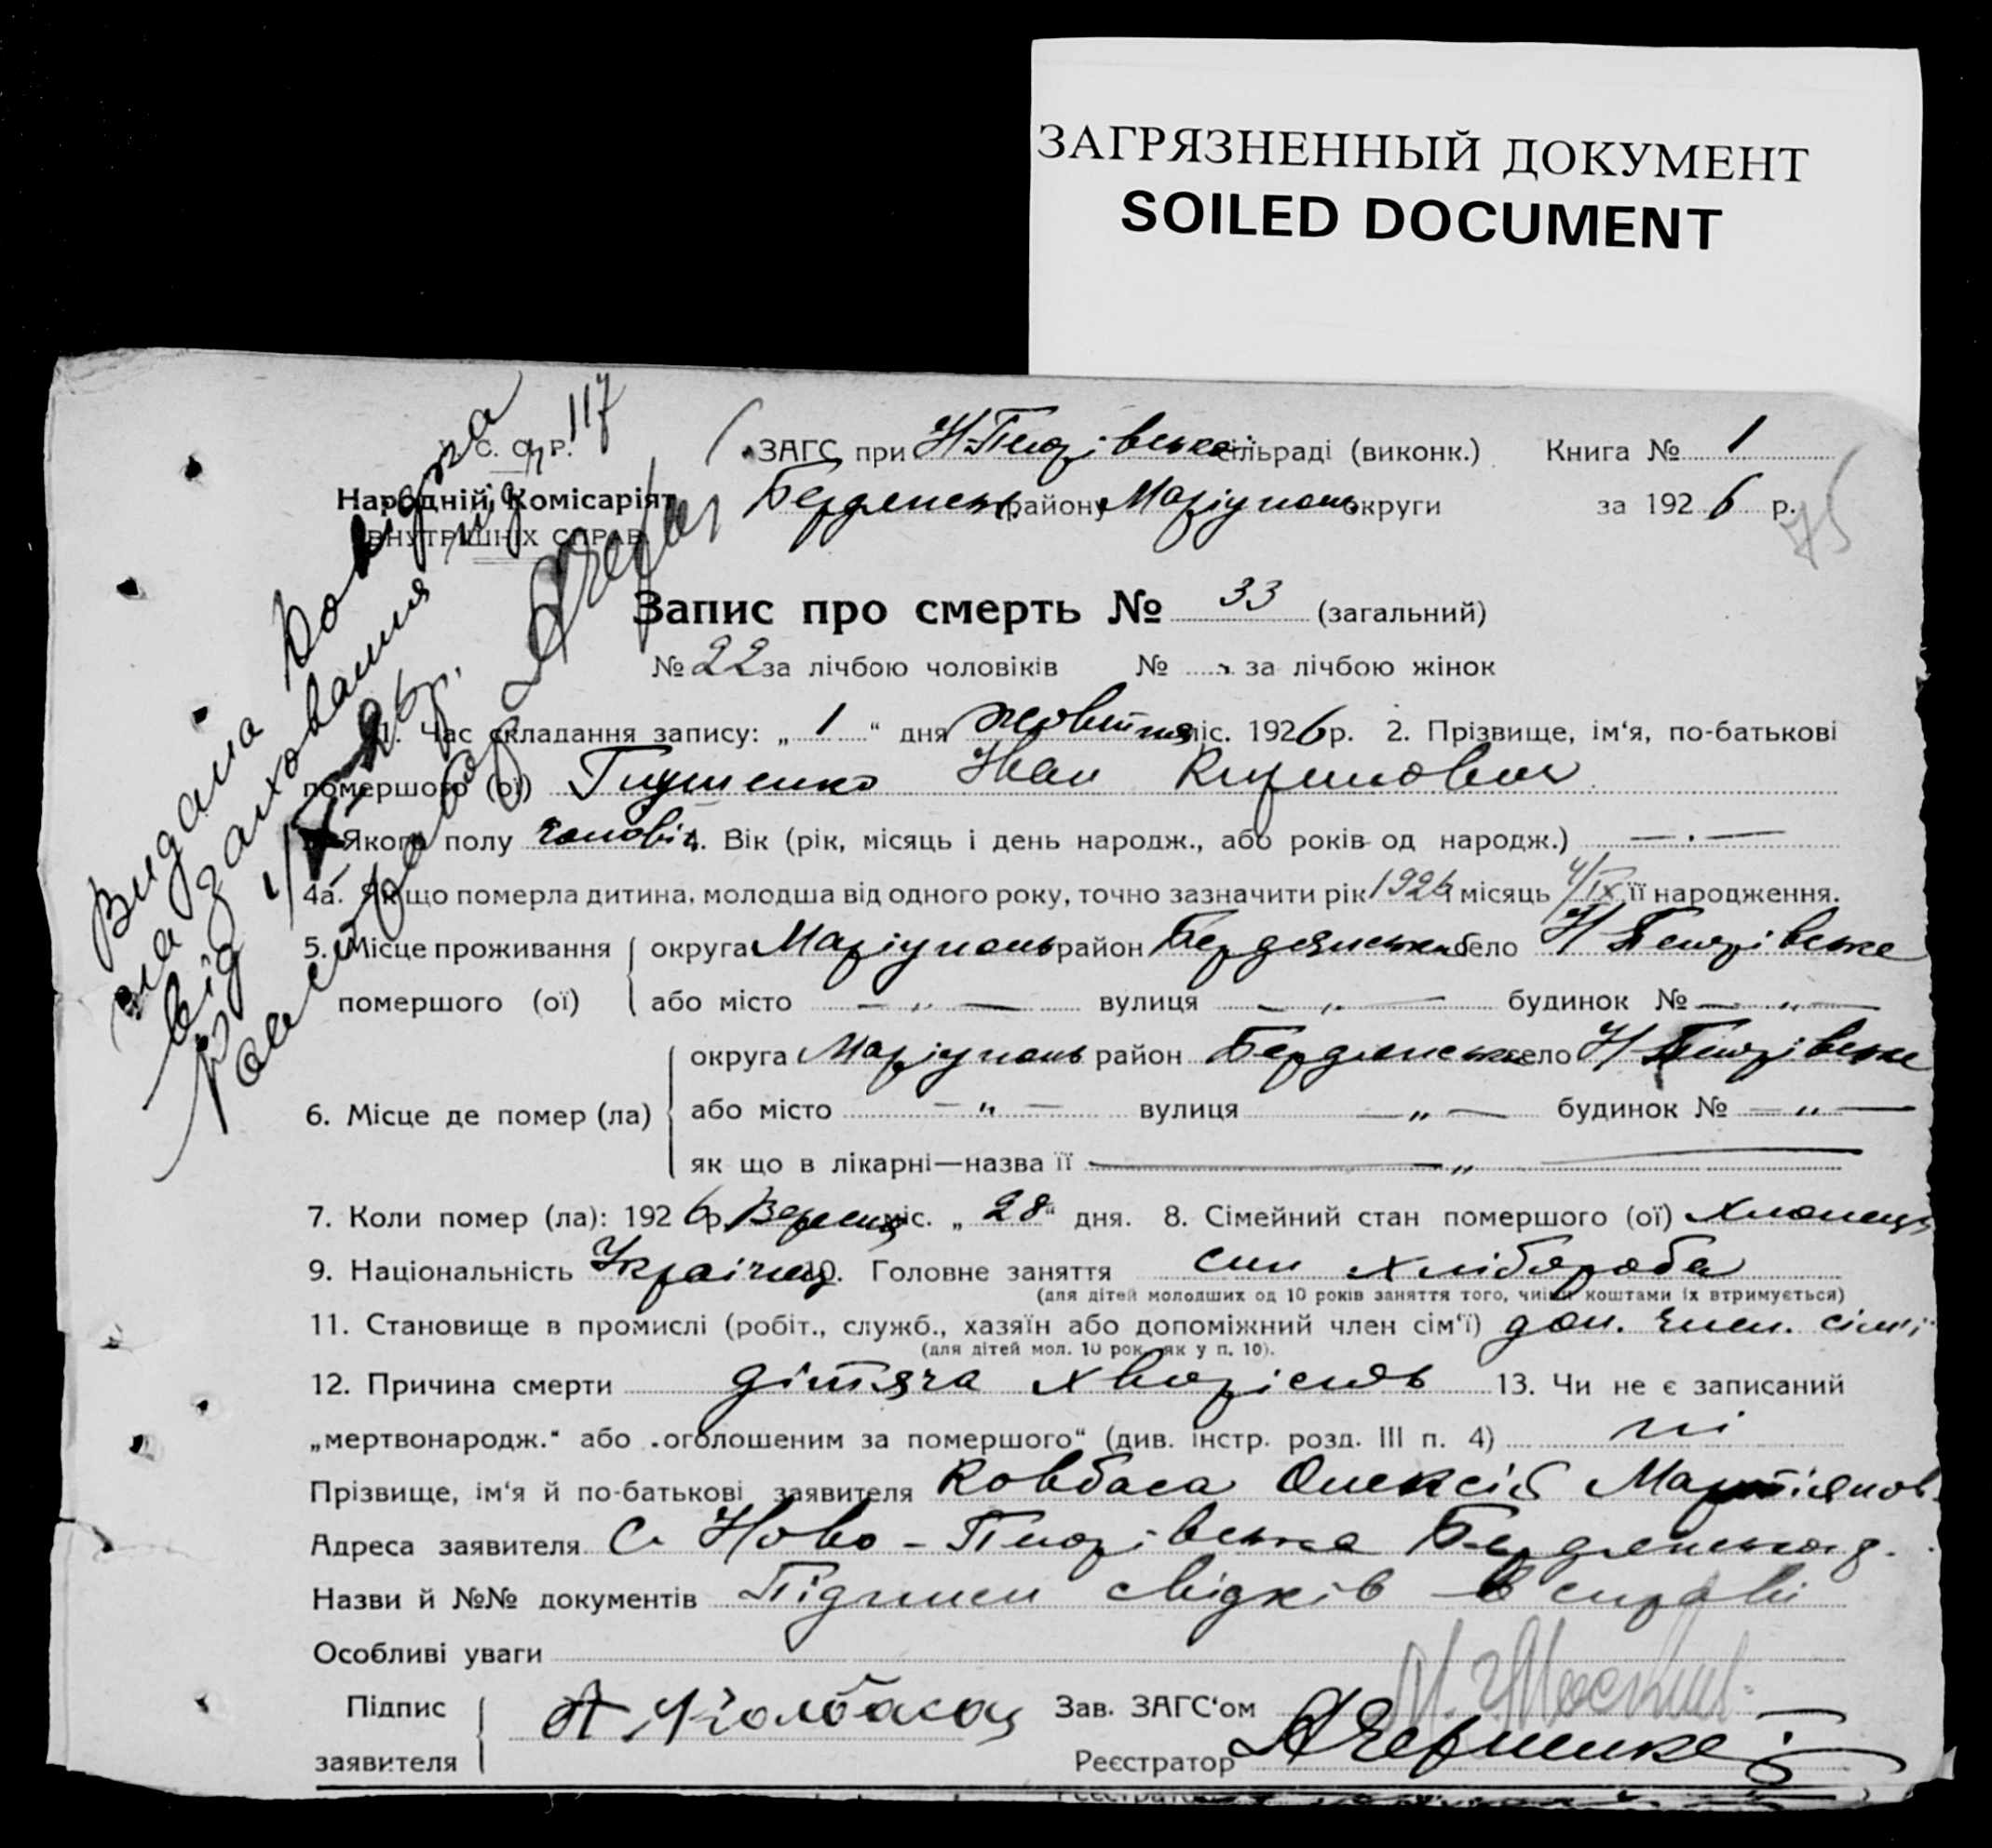 ЗАГРЯЗНЕННЫЙ ДОКУМЕНТ
SOILED DOCUMENT
У. С. Р. Р.
Народній Комісаріят
ВНУТРІШНІХ СПРАВ
ЗАГС при сільраді (виконк.) Книга № 1
Бердянськ району Маріуполь округи за 1926 р.
75
Запис про смерть № 33 (загальний)
№ 22 за лічбою чоловіків № за лічбою жінок
1. Час складання запису: „1“ дня Жовтня міс. 1926 р. 2. Прізвище, ім‘я, по-батькові
помершого (ої) Іван
3. Якого полу чоловіч. 4. Вік (рік, місяць і день народж., або років од народж.) — . —
4а. Як що померла дитина, молодша від одного року, точно зазначити рік 1926 місяць 4/IX її народження.
5. Місце проживання помершого (ої) округа Маріуполь район Бердянське село
або місто — „ — вулиця — „ — будинок № — „ —
6. Місце де помер (ла) округа Маріуполь район Бердянське село
або місто — „ — вулиця — „ — будинок № — „ —
як що в лікарні—назва її — „ —
7. Коли помер (ла): 1926 р. Вересня міс. „28“ дня. 8. Сімейний стан помершого (ої) хлопець
9. Національність Українец 10. Головне заняття син хлібороба
(для дітей молодших од 10 років заняття того, чиїми коштами їх втримується)
11. Становище в промислі (робіт., служб., хазяїн або допоміжний член сім‘ї) доп. член. сім'ї
(для дітей мол. 10 рок. як у п. 10).
12. Причина смерти дітяча хворість 13. Чи не є записаний
„мертвонародж.“ або „оголошеним за помершого“ (див. інстр. розд. III п. 4) ні
Прізвище, ім‘я й по-батькові заявителя Ковбаса Олексій Мартіянов.
Адреса заявителя С. Ново-
Назви й №№ документів Підписи свідків в справі
Особливі уваги
Підпис заявителя А Колбаса Зав. ЗАГС‘ом
Реєстратор
Видана Довідка
на заховання під ч. 117
від 1/X 26 р.